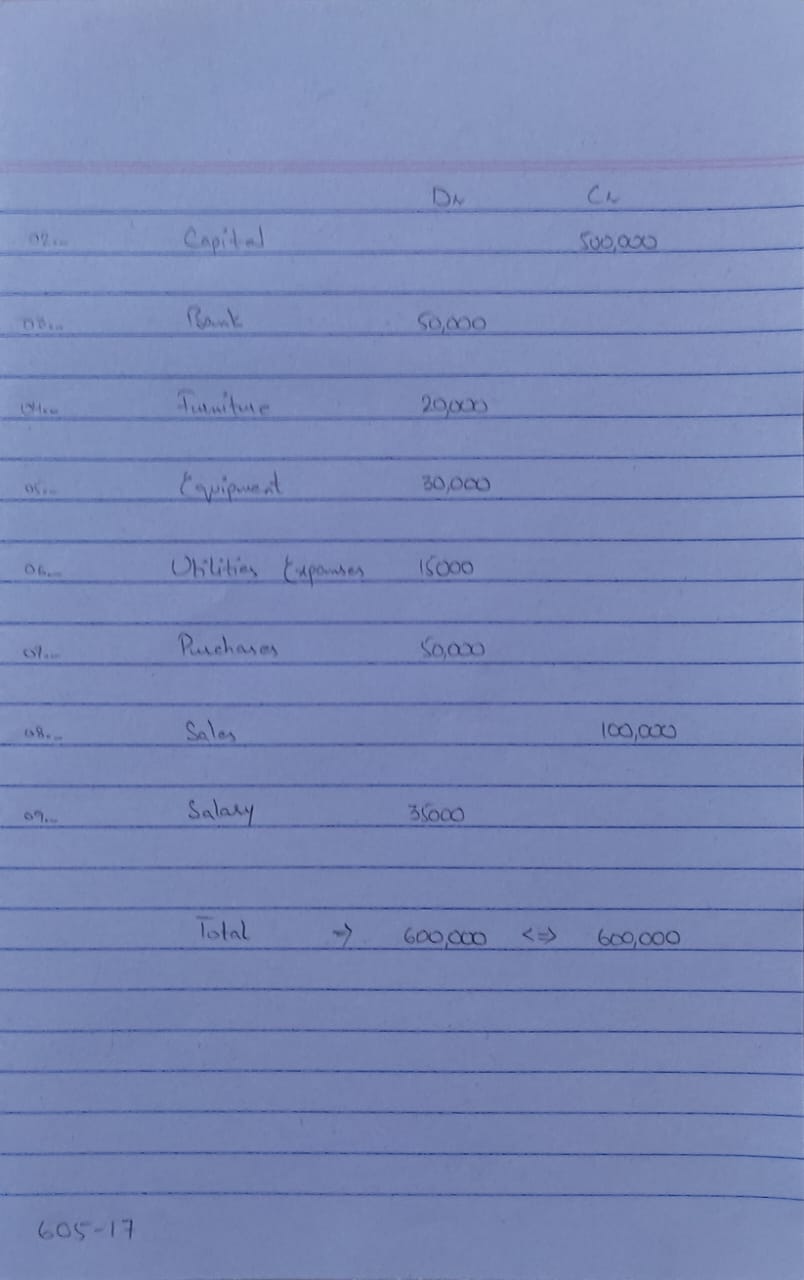 Dr Cr
02... Capital 500,000
03... Bank 50,000
04... Furniture 20,000
05... Equipment 30,000
06... Utilities Expenses 15000
07... Purchases 50,000
08... Sales 100,000
09... Salary 35000
Total => 600,000 <=> 600,000
605-17